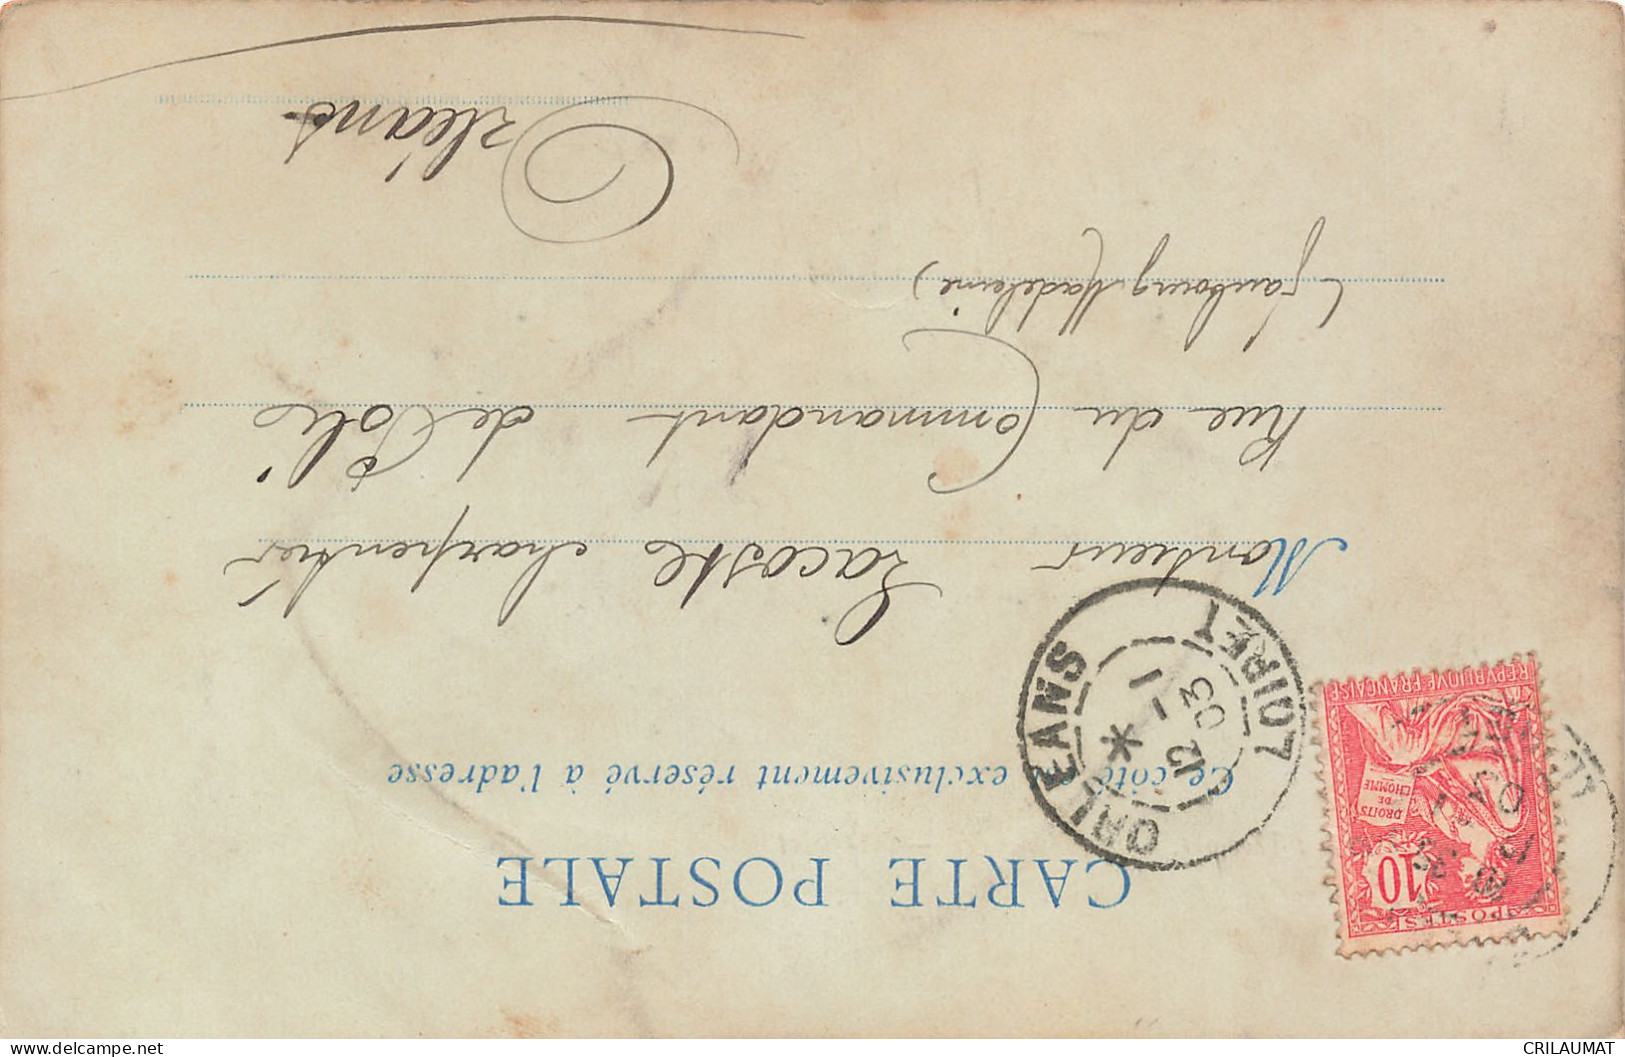 CARTE POSTALE
Ce côté exclusivement réservé à l'adresse
Monsieur Lacoste charpentier
Rue du Commandant de
(faubourg Madeleine)
Orléans
ORLEANS
* 1 -1
12 03
LOIRET
POSTES
10
DROITS
DE
L'HOMME
REPVBLIQVE FRANÇAISE
CRILAUMAT